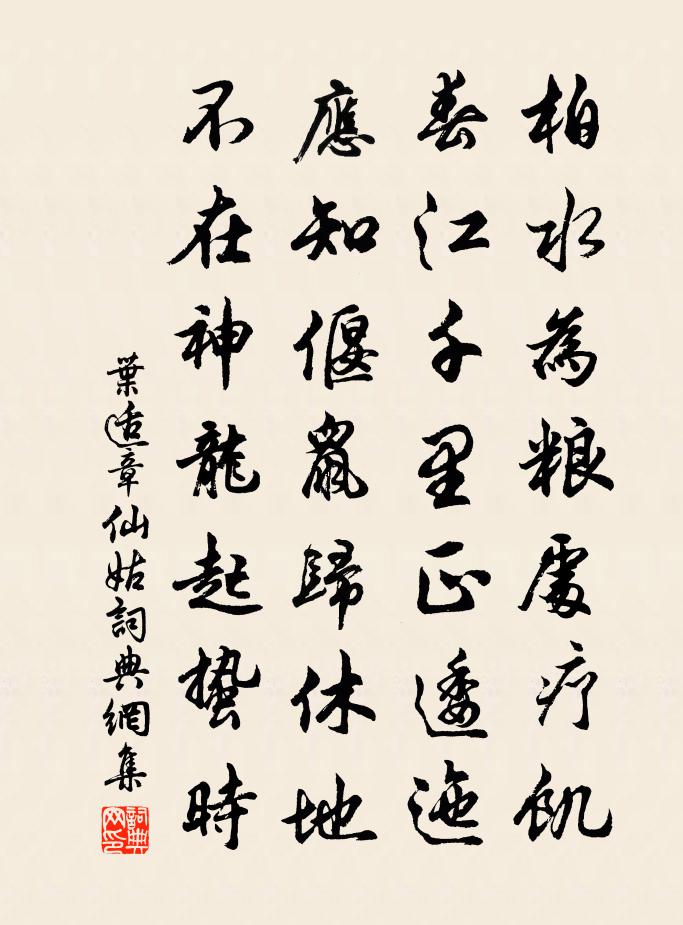 柏水為粮處疗飢
春江千里正逶迤
應知偃鼠歸休地
不在神龍起蟄時
葉適章仙姑詞典網集
詞典网印